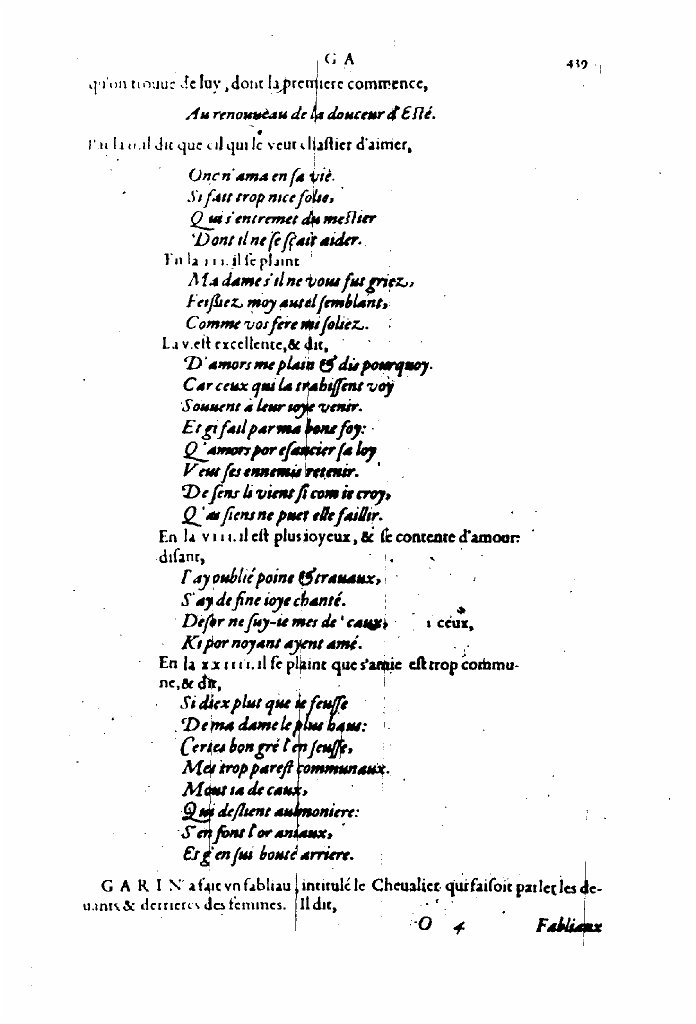 G A 439
qu'on trouue de luy, dont la premiere commence,
Au renouueau de la douceur d'Esté.
il dit que cil qui se veut chastier d'aimer,
Onc n'ama en sa vie.
Si fait trop nice folie,
Qui s'entremet du mestier
Dont il ne se sçait aider.
En la III. il se plaint
Ma dame s'il ne vous fus griez,
Feissiez moy autel semblant,
Comme vos fere mi soliez.
La v. est excellente, & dit,
D'amors me plain & dis pourquoy.
Car ceux qui la trahissent voy
Souuent à leur ioye venir.
Et gi fail par ma bone foy:
Q'amors por esancier sa loy
Veut ses ennemis retenir.
De sens li vient si com ie croy,
Q'as siens ne puet elle faillir.
En la VIII. il est plus ioyeux, & se contente d'amour
disant,
I'ay oublié poine & trauaux,
S'ay de fine ioye chanté.
Desor ne suy-ie mes de caux, ceux,
Ki por noyant ayent amé.
En la XXIIII. il se plaint que s'amie est trop commu-
ne, & dit,
Si diex plut que ie seusse
De ma dame le plus haus:
Certes bon gré l'en seusse,
Mes trop parest communaux.
Mout ia de caux,
Qui deslient aumoniere:
S'en font l'or aniaux,
Et g'en sui bouté arriere.
GARIN a fait vn fabliau intitulé le Cheualier qui faisoit parler les de-
uants & derrieres des femmes. Il dit,
O 4 Fabliaux